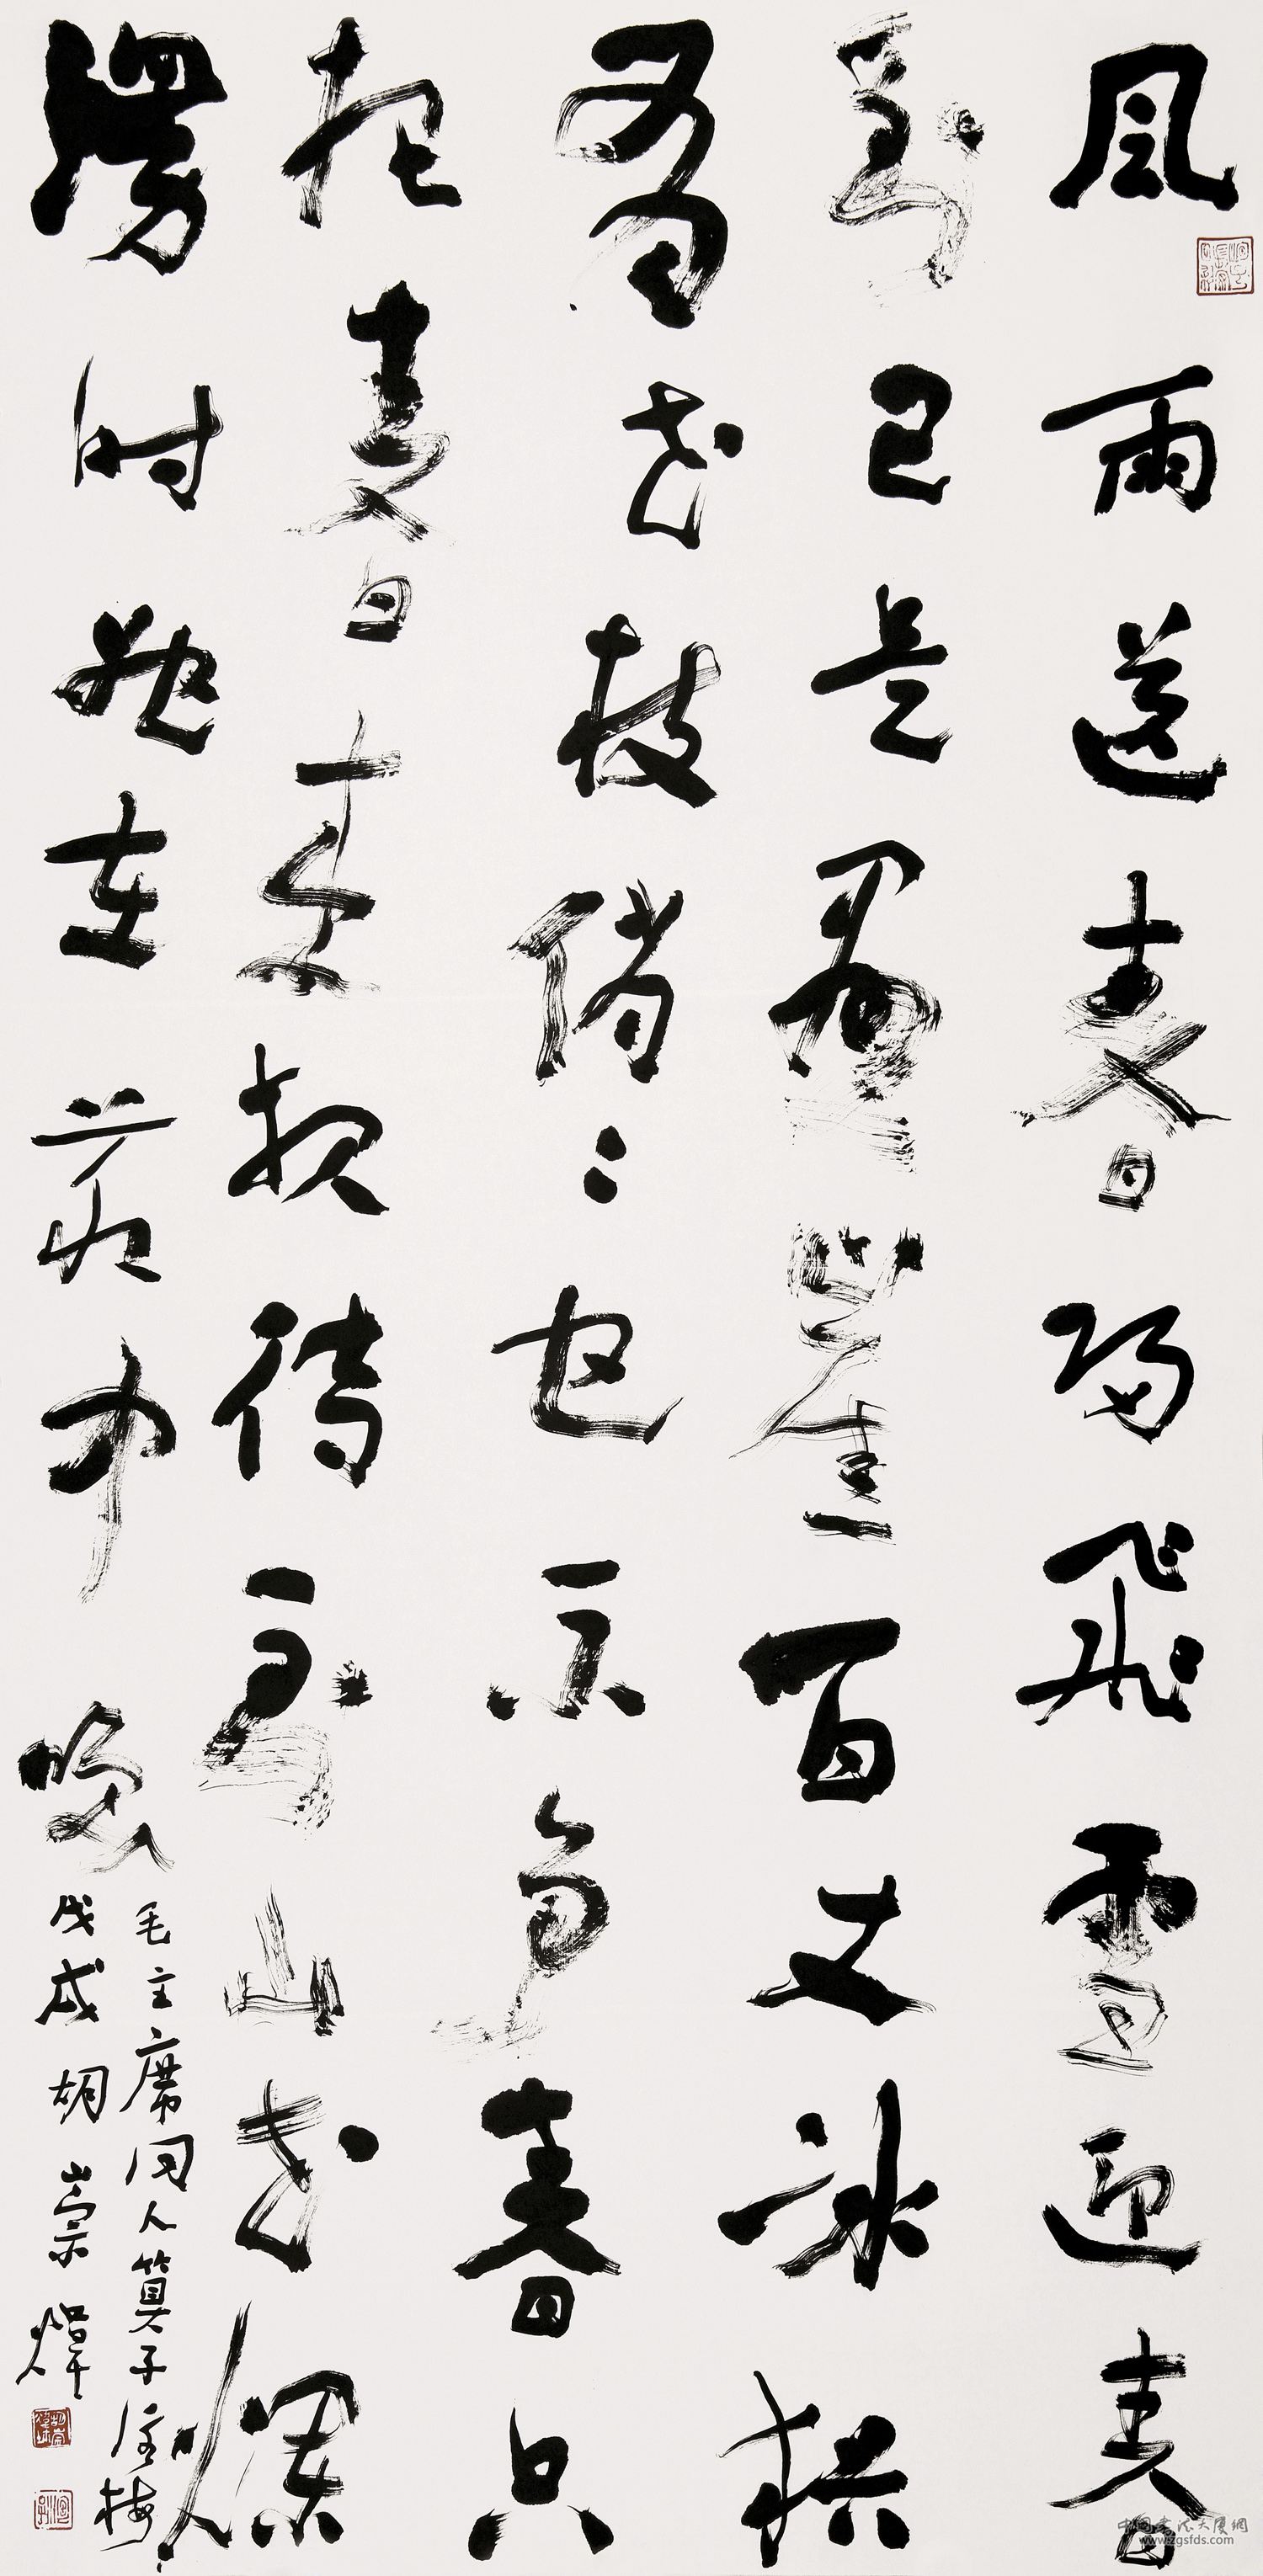 風雨送春歸飛雪迎春
到已是懸崖百丈冰猶
有花枝俏〻也不爭春只
把春來報待到山花爛
漫时她在叢中笑
毛主席词卜算子詠梅
戊戌胡崇煒
中国书法大厦網
www.zgsfds.com